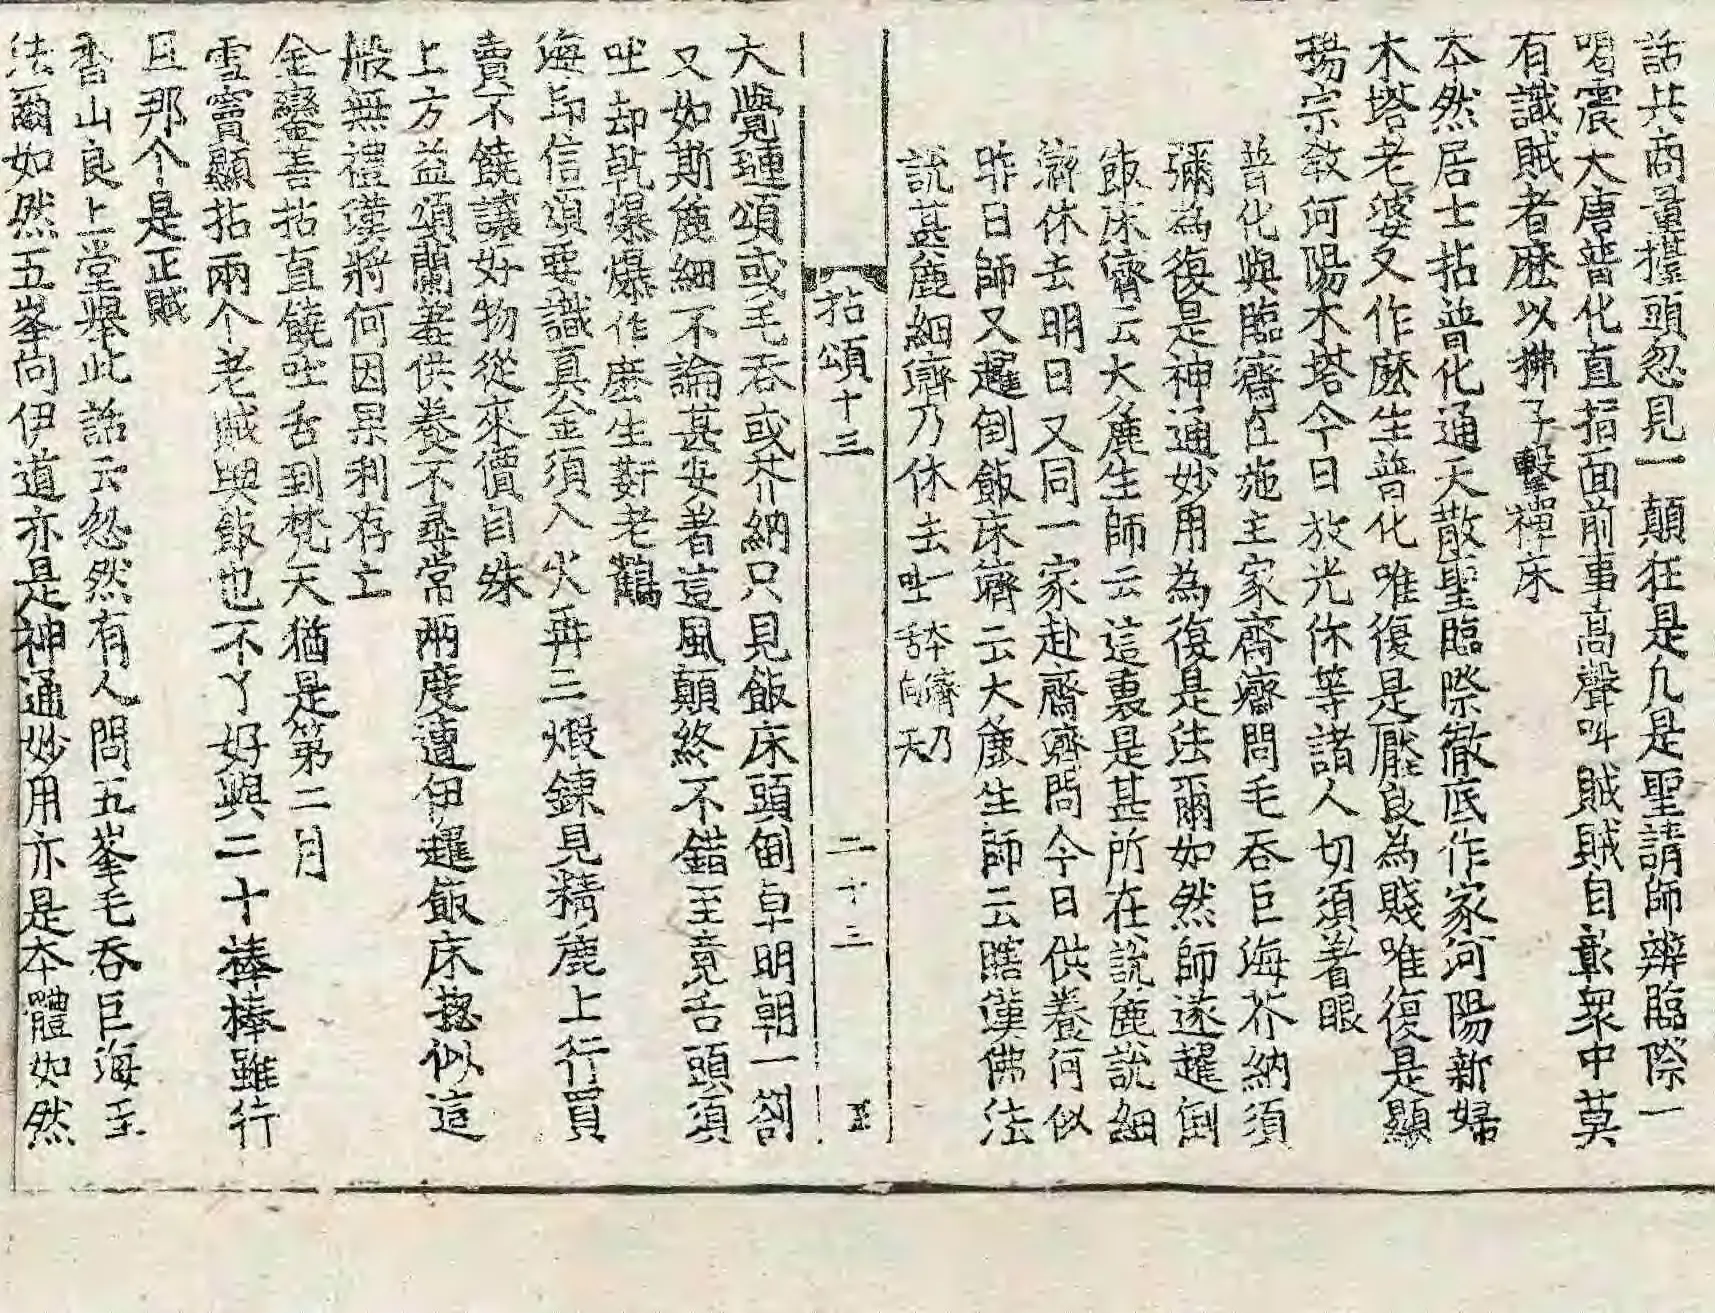 話共商量擡頭忽見一顛狂是凢是聖請師辨臨際一
喝震大唐普化直指面前事高聲叫賊賊自彰衆中莫
有識賊者麽以拂子擊禪床
本然居士拈普化通天散聖臨際徹底作家河陽新婦
木塔老婆又作麽生普化唯復是壓良為賤唯復是顯
揚宗敎河陽木塔今日放光你等諸人切須著眼
普化與臨濟在施主家齋濟問毛吞巨海芥納須
彌為復是神通妙用為復是法爾如然師遂趯倒
飯床濟云大麁生師云這裏是甚所在說麁說細
濟休去明日又同一家赴齋濟問今日供養何似
昨日師又趯倒飯床濟云大麁生師云瞎漢佛法
說甚麁細濟乃休去一本濟乃吐舌向天
拈頌十三
二十三
大覺璉頌或毛吞或芥納只見飯床頭倒卓明朝一劄
又如斯麁細不論甚安著這風顛終不錯至竟舌頭須
吐却乹爆爆作麽生莾老鸛
海印信頌要識真金須入火再三煆鍊見精麁上行買
賣不饒讓好物從來價自殊
上方益頌闌羞供養不尋常兩度遭伊趯飯床揔似這
般無禮漢將何因果利存亡
金鑾善拈直饒吐舌到梵天猶是第二月
雪竇顯拈兩个老賊與飯也不了好與二十棒棒雖行
且那个是正賊
香山良上堂擧此話云忽然有人問五峯毛吞巨海至
法爾如然五峯向伊道亦是神通妙用亦是本體如然